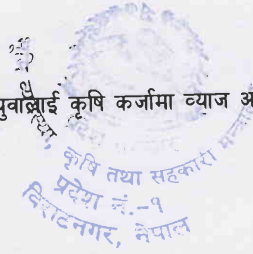 युवालाई कृषि कर्जामा व्याज अ
कृषि तथा सहकारी
प्रदेश नं.-१
विराटनगर, नेपाल